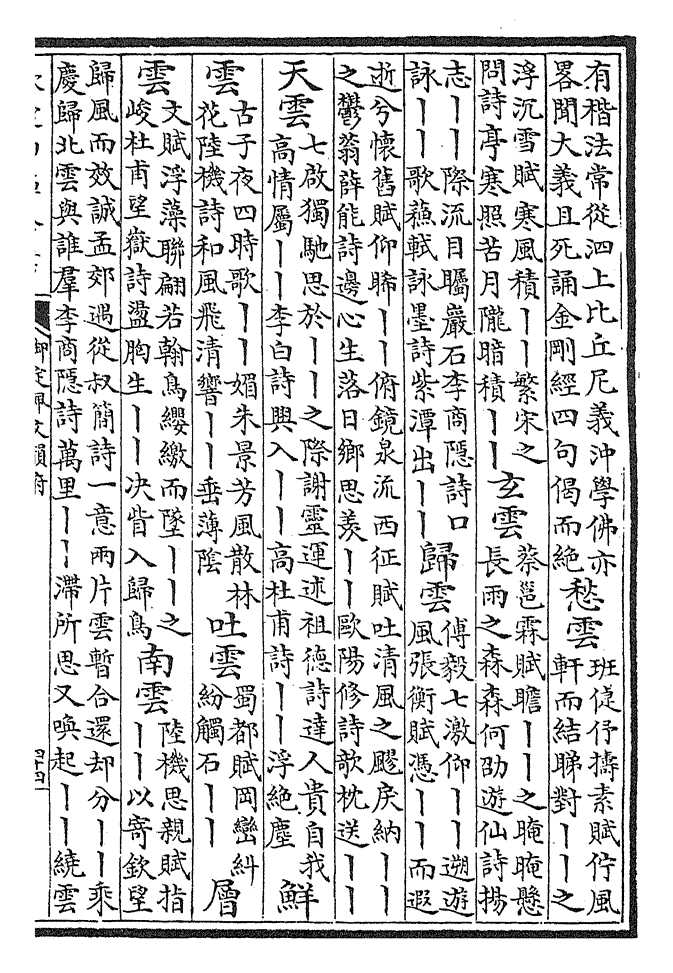 有稽法常從泗上比丘尼義沖學佛亦
畧聞大義且死誦金剛經四句偈而絶
愁雲
班倢伃擣素賦佇風
軒而結睇對丨丨之
浮沉雪賦寒風積丨丨繁宋之
問詩亭寒照苦月隴暗積丨丨
玄雲
蔡邕霖賦瞻丨丨之晻晻懸
長雨之森森何劭遊仙詩揚
志丨丨際流目矚巖石李商隱詩口
詠丨丨歌蘓軾詠墨詩紫潭出丨丨
歸雲
傅毅七激仰丨丨遡遊
風張衡賦憑丨丨而遐
逝兮懷舊賦仰睎丨丨俯鏡泉流西征賦吐清風之飂戾納丨丨
之鬱蓊薛能詩邊心生落日鄉思羨丨丨歐陽修詩欹枕送丨丨
天雲
七啟獨馳思於丨丨之際謝靈運述祖德詩達人貴自我
高情屬丨丨李白詩興入丨丨高杜甫詩丨丨浮絶塵
鮮
雲
古子夜四時歌丨丨媚朱景芳風散林
花陸機詩和風飛清響丨丨垂薄陰
吐雲
蜀都賦岡巒糾
紛觸石丨丨
層
雲
文賦浮藻聯翩若翰鳥纓繳而墜丨丨之
峻杜甫望嶽詩盪胸生丨丨決眥入歸鳥
南雲
陸機思親賦指
丨丨以寄欽望
歸風而效誠孟郊遇從叔簡詩一意兩片雲暫合還却分丨丨乘
慶歸北雲與誰羣李商隱詩萬里丨丨滯所思又喚起丨丨繞雲
御定佩文韻府